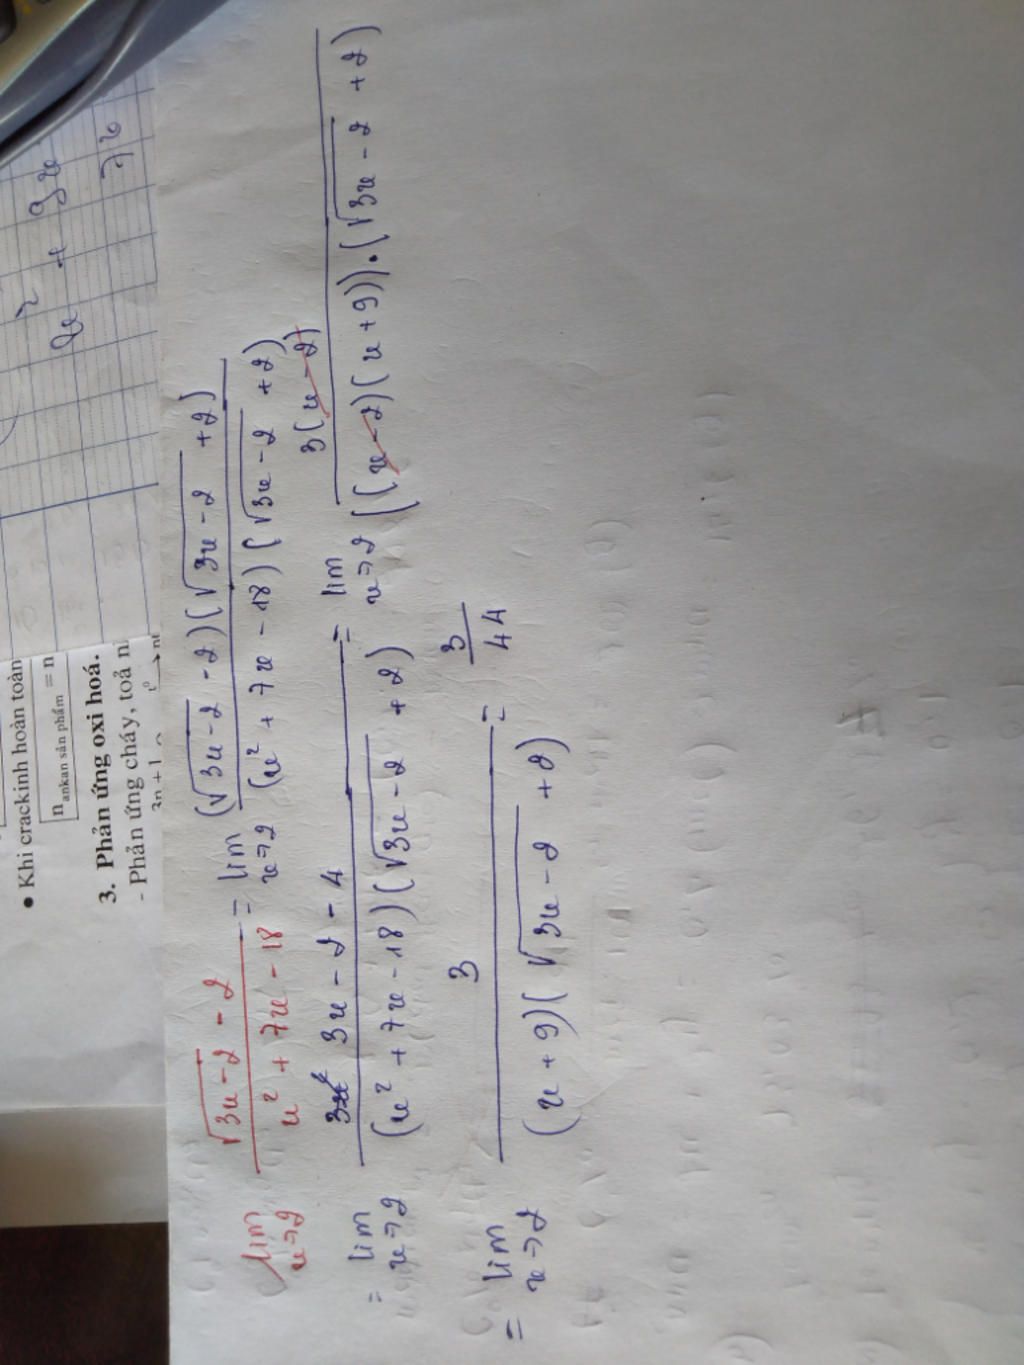 x² + 9x
7x
• Khi crackinh hoàn toàn
n ankan sản phẩm = n
3. Phản ứng oxi hoá.
- Phản ứng cháy, toả n
3n + 1
t⁰
lim x→2 (√(3x-2) - 2)/(x² + 7x - 18) = lim x→2 ((√(3x-2) - 2)(√(3x-2) + 2))/((x² + 7x - 18)(√(3x-2) + 2))
= lim x→2 (3x - 2 - 4)/((x² + 7x - 18)(√(3x-2) + 2)) = lim x→2 (3(x-2))/(((x-2)(x+9)).(√(3x-2) + 2))
= lim x→2 3/((x+9)(√(3x-2) + 2)) = 3/44